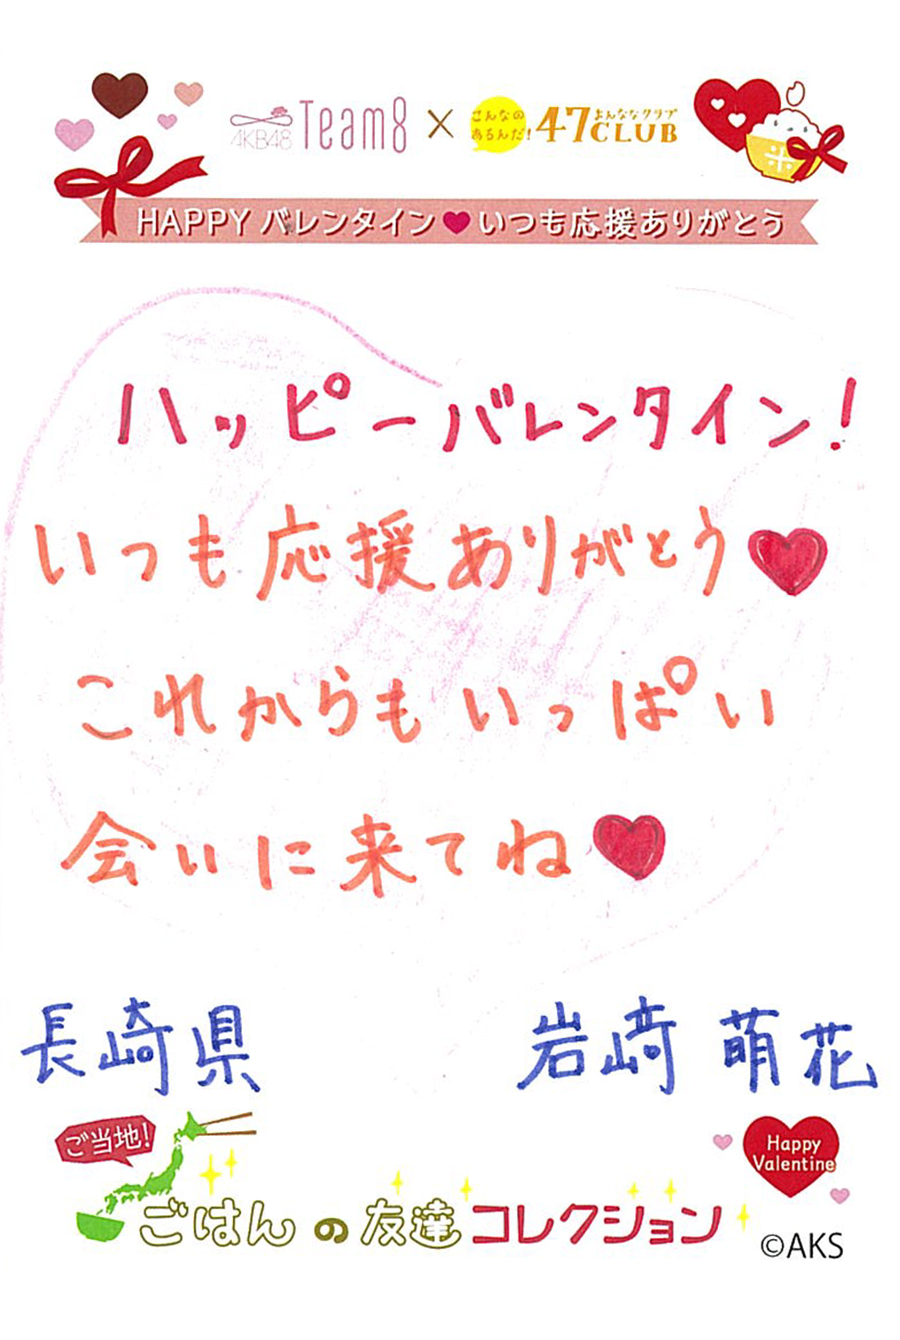 AKB48 Team8 × こんなの あるんだ! 47CLUB よんななクラブ
米
HAPPY バレンタイン♥いつも応援ありがとう
ハッピーバレンタイン!
いつも応援ありがとう♥
これからもいっぱい
会いに来てね♥
長崎県 岩﨑 萌花
ご当地!
ごはんの友達コレクション
Happy
Valentine
©AKS